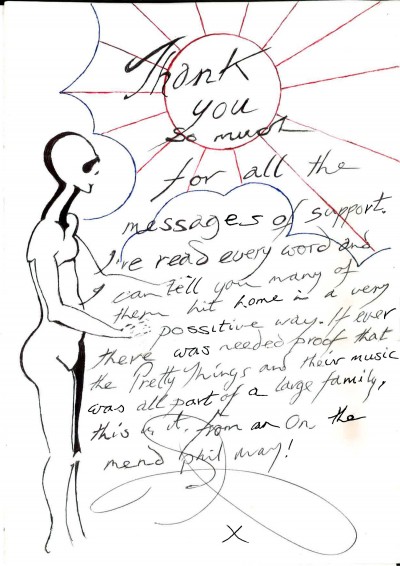 Thank
you
so much
for all the
messages of support.
I've read every word and
I can tell you many of
them hit home in a very
possitive way. If ever
there was needed proof that
the Pretty Things and their music
was all part of a large family,
this is it. from an On the
mend phil may!
X